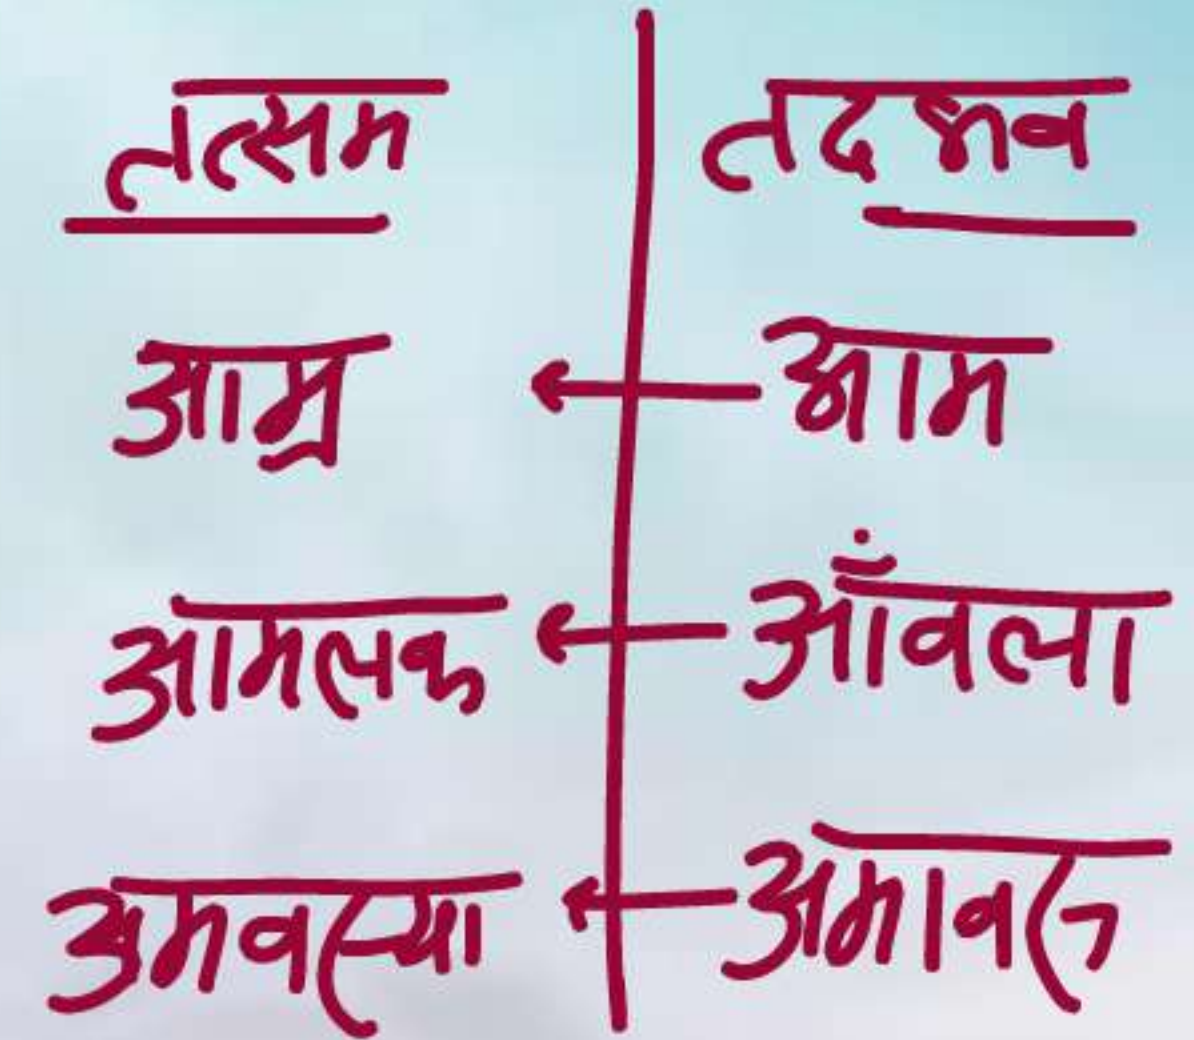 तत्सम तदभव
आम्र ← आम
आमलक ← आँवला
अमवस्या ← अमावस